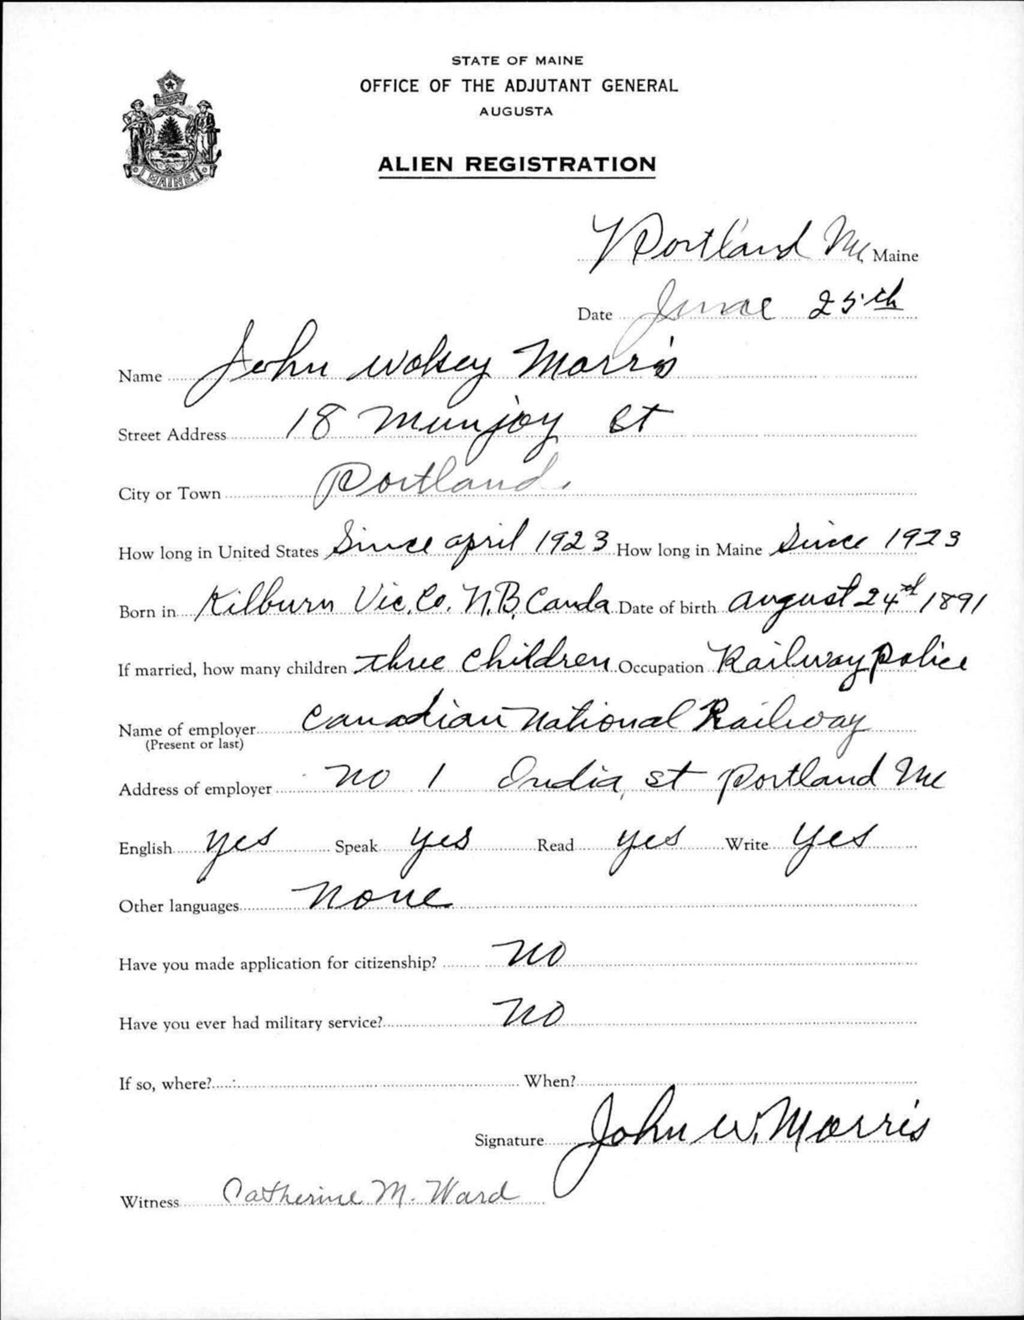 STATE OF MAINE
OFFICE OF THE ADJUTANT GENERAL
AUGUSTA
MAINE
ALIEN REGISTRATION
Portland Me Maine
Date June 25th
Name John Wolsey Morris
Street Address 18 Munjoy St
City or Town Portland.
How long in United States Since april 1923 How long in Maine Since 1923
Born in Kilburn Vic. Co. N.B. Canda Date of birth august 24th 1891
If married, how many children three children Occupation Railway police
Name of employer Canadian National Railway
(Present or last)
Address of employer No 1 India, st Portland Me
English yes Speak yes Read yes Write yes
Other languages None
Have you made application for citizenship? No
Have you ever had military service? No
If so, where? When?
Signature John W. Morris
Witness Catherine M. Ward